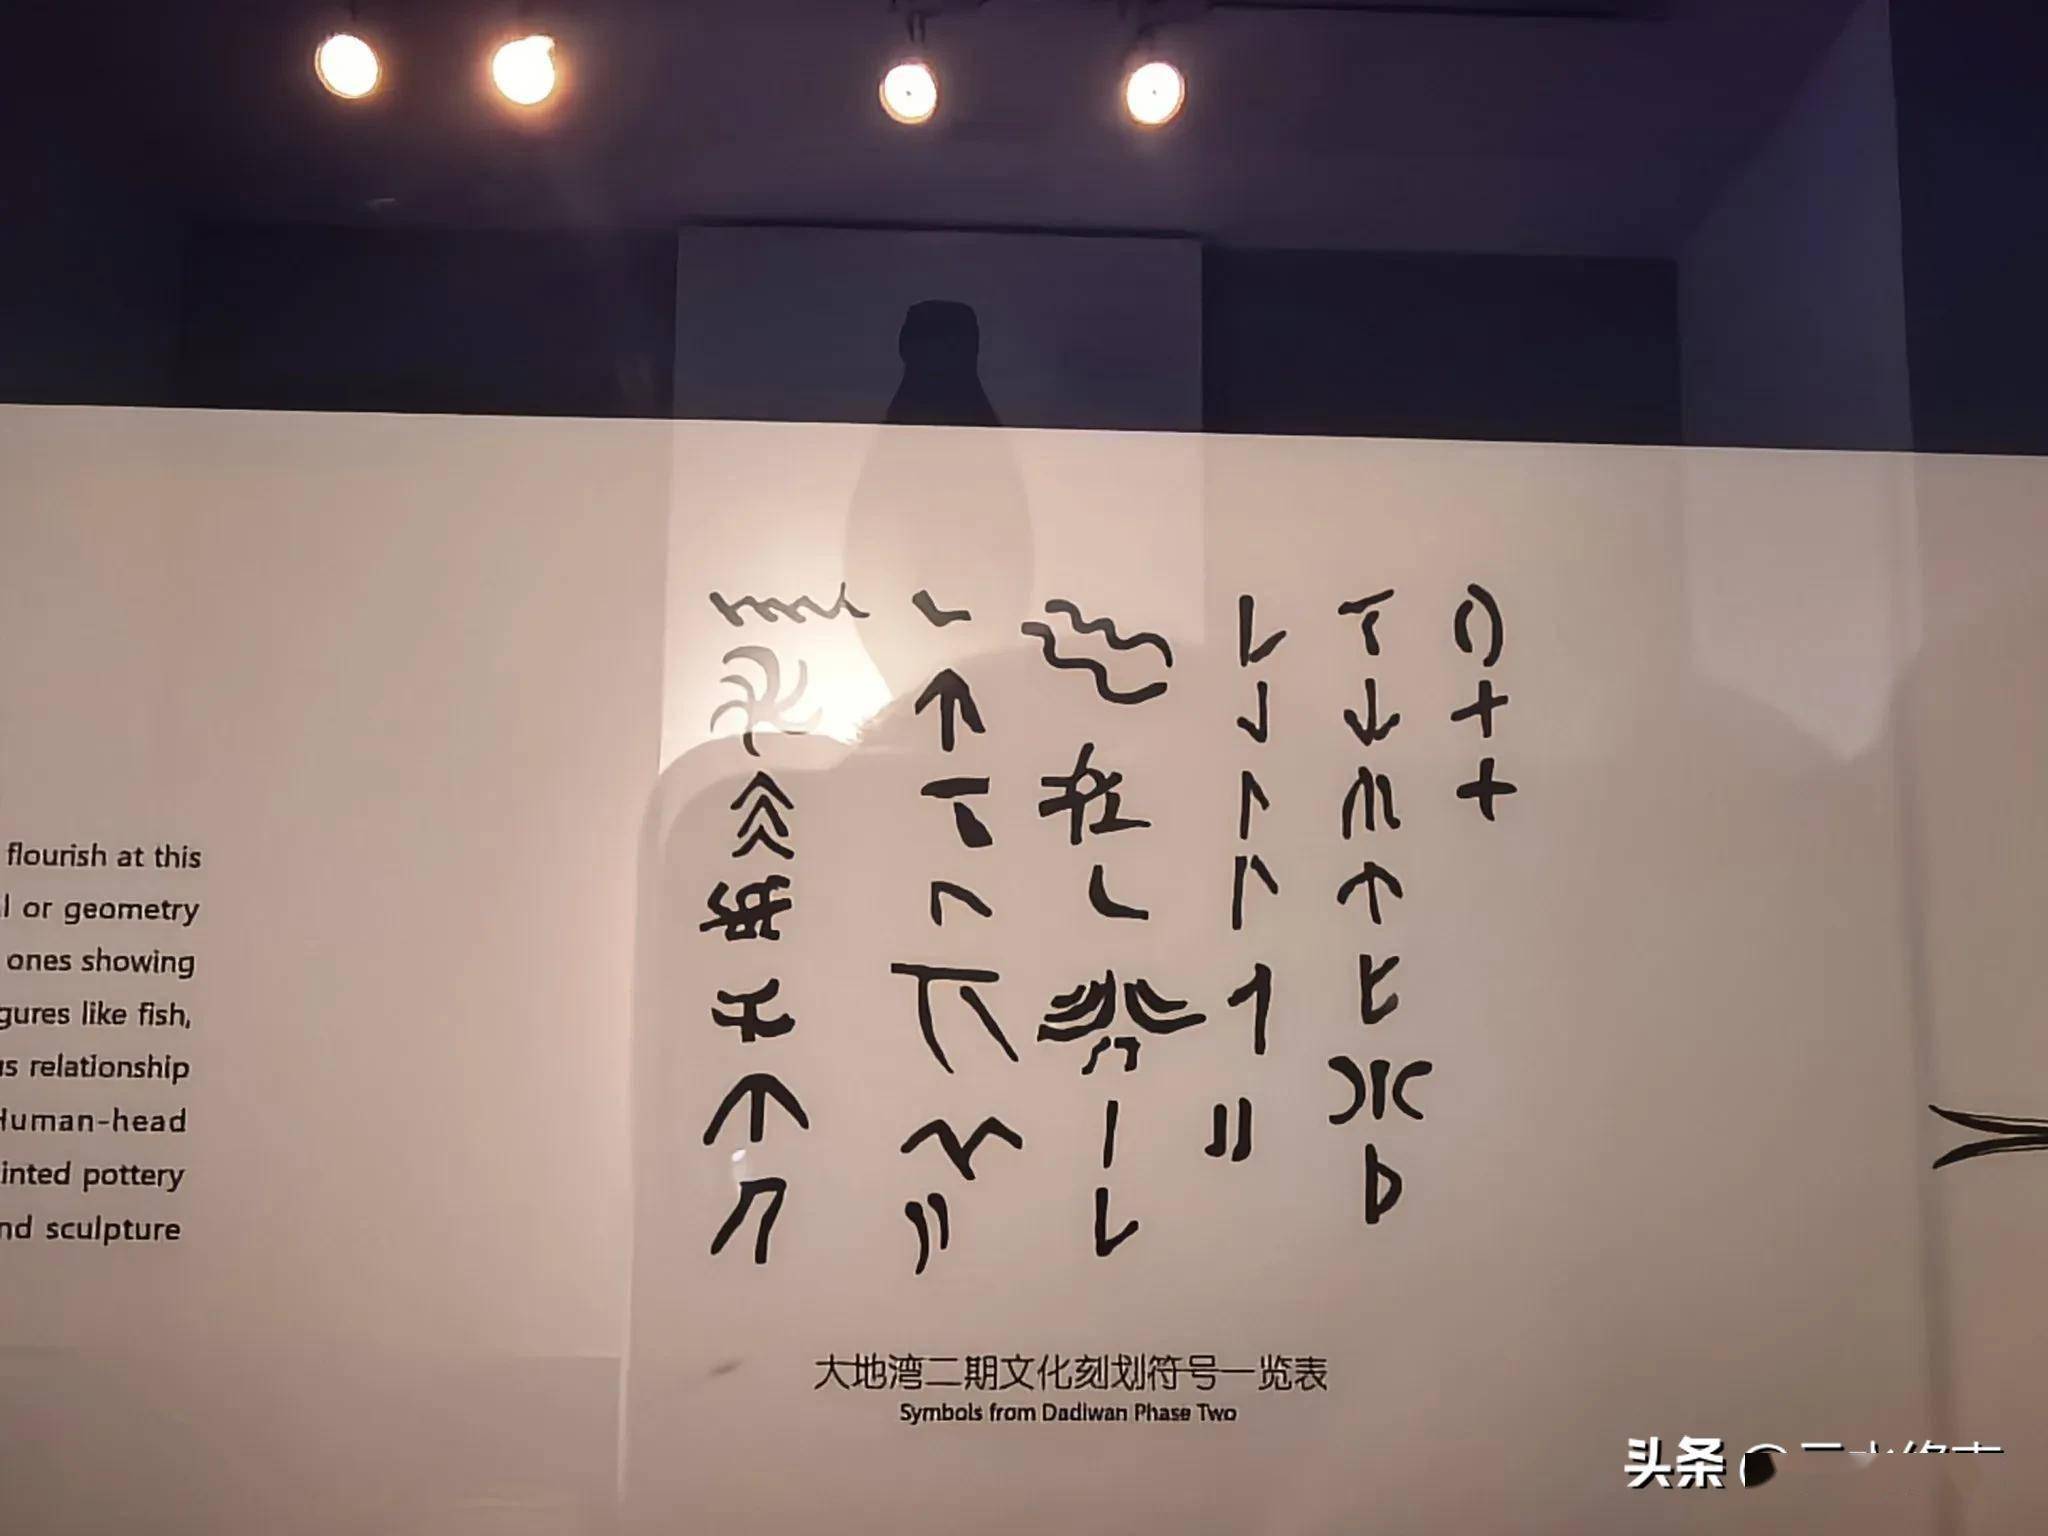 flourish at this
or geometry
ones showing
like fish,
relationship
Human-head
pottery
sculpture
大地湾二期文化刻划符号一览表
Symbols from Dadiwan Phase Two
头条